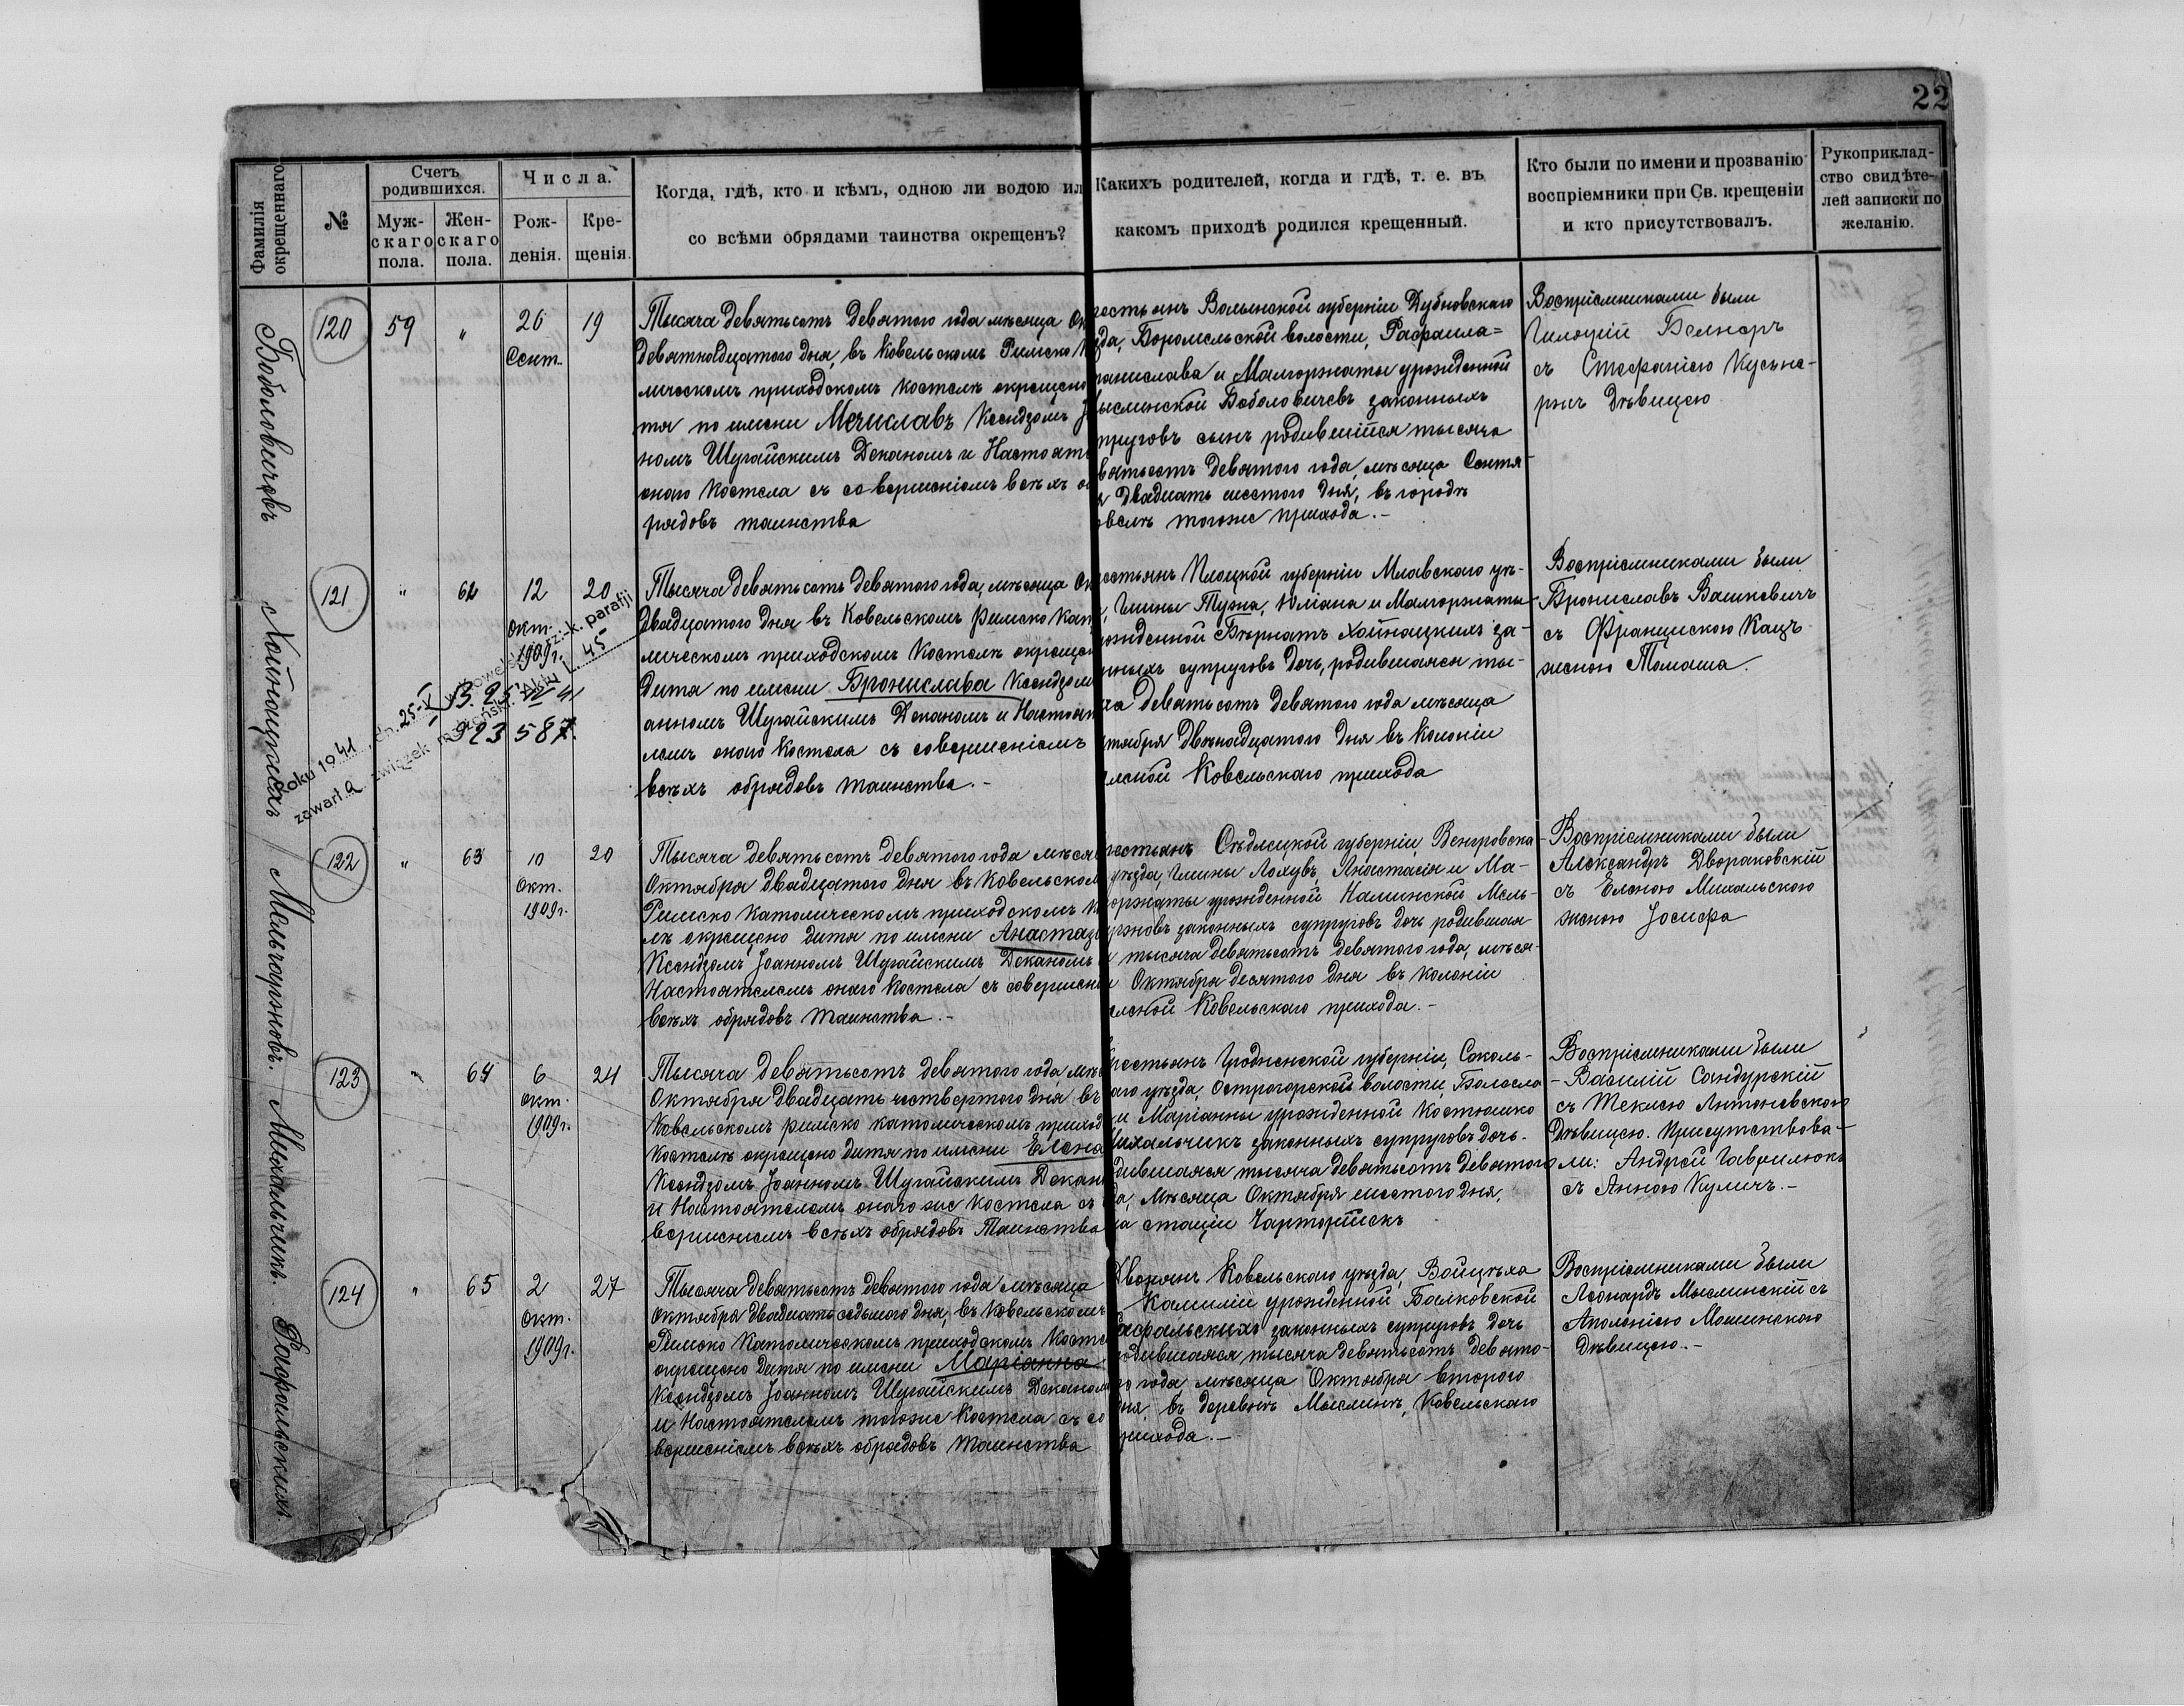 22
Фамилія окрещеннаго
№
Счетъ родившихся.
Муж-
скаго
пола.
Жен-
скаго
пола.
Числа.
Рож-
денія.
Кре-
щенія.
Когда, гдѣ, кто и кѣмъ, одною ли водою ил
со всѣми обрядами таинства окрещенъ?
Какихъ родителей, когда и гдѣ, т. е. въ
какомъ приходѣ родился крещенный.
Кто были по имени и прозванію
воспріемники при Св. крещеніи
и кто присутствовалъ.
Рукоприклад-
ство свидѣте-
лей записки по
желанію.
Боболовичовъ
120 59 " 26 19
Сент.
Тысяча девятьсотъ девятого года мѣсяца Ок
девятнадцатого дня, въ Ковельскомъ Римско К
лическомъ приходскомъ костелѣ окрещено
тя по имени Мечиславъ Ксендзомъ
номъ Шугайскимъ Деканомъ и Настоят
онаго Костела съ совершеніемъ всѣхъ об
рядовъ таинства
рестьянъ Волынской губерніи Дубновскаго
зда, Боромельской волости, Рафаила-
танислава и Малгоржаты урожденной
ыслинской Боболовичевъ законныхъ
пруговъ сынъ родившійся тысяча
вятьсотъ девятого года, мѣсяца Сентя-
я двадцать шестого дня, въ городѣ
овелѣ тогоже прихода.-
Воспріемниками были
Белнеръ
съ Стефаніею
Дѣвицею
Хойнацкихъ
121 " 62 12 20
Окт.
1909г.
roku 1941 dn. 25-V w Kowelskiej rz.-k. parafji
zawarła związek małżeński. Akt 45
923587.
Тысяча девятьсотъ девятого года, мѣсяца Ок
двадцатого дня въ Ковельскомъ Римско Кат
лическомъ приходскомъ Костелѣ окрещен
дитя по имени Бронислава Ксендзом
анномъ Шугайскимъ Деканомъ и Настоят
лемъ онаго Костела съ совершеніемъ
всѣхъ обрядовъ таинства.-
рестьянъ Плоцкой губерніи Млавскаго уѣ-
Гмины Тужа, Юліана и Малгоржаты
ожденной Бернатъ Хойнацкихъ за-
нныхъ супруговъ дочь, родившаяся ты-
ча девятьсотъ девятого года мѣсяца
тября двѣнадцатого дня въ Колоніи
Ковельскаго прихода
Воспріемниками были
Брониславъ Вашкевичъ
съ Францискою Кацъ
женою Томаша.
Мельгоржовъ.
122 " 63 10 20
Окт.
1909г.
Тысяча девятьсотъ девятого года мѣся
Октября двадцатого дня въ Ковельском
Римско Католическомъ приходскомъ К
лѣ окрещено дитя по имени Анастаз
Ксендзомъ Іоанномъ Шугайскимъ Деканомъ
Настоятелемъ онаго Костела съ совершен
всѣхъ обрядовъ таинства.-
рестьянъ Сѣдлецкой губерніи, Венгровска-
уѣзда, Гмины Лохувъ, Анастасія и Ма-
оржаты урожденной Калинской Мель-
оржовъ законныхъ супруговъ дочь родившая
тысяча девятьсотъ девятого года, мѣся-
Октября десятого дня въ колоніи
Ковельскаго прихода.-
Воспріемниками были
Александръ Двораковскій
съ Еленою Михальскою
женою Іосифа
Михальчикъ.
123 " 64 6 24
Окт.
1909г.
Тысяча девятьсотъ девятого года, мѣс
Октября двадцать четвертого дня въ
Ковельскомъ римско католическомъ приход
костелѣ окрещено дитя по имени Елена
Ксендзомъ Іоанномъ Шугайскимъ Декан
и Настоятелемъ онаго же костела съ
вершеніемъ всѣхъ обрядовъ Таинства
рестьянъ Гродненской губерніи, Соколь-
аго уѣзда, Острогорской волости, Болесла-
и Маріанны урожденной Костюшко
Михальчикъ законныхъ супруговъ дочь.
дившаяся тысяча девятьсотъ девятого
да, мѣсяца Октября шестого дня,
на стаціи Чарторійскъ
Воспріемниками были
Василій Сандурскій
съ Теклею Антоневскою
Дѣвицею. Присутствова-
ли: Андрей Гаврилюкъ
съ Анною Куличъ.-
Рафальскихъ
124 " 65 2 27
Окт.
1909г.
Тысяча девятьсотъ девятого года мѣсяца
Октября двадцать седьмого дня, въ Ковельскомъ
Римско Католическомъ приходскомъ Косте
окрещено дитя по имени Маріанна
Ксендзомъ Іоанномъ Шугайскимъ Деканом
и Настоятелемъ тогоже Костела съ со
вершеніемъ всѣхъ обрядовъ таинства
Дворянъ Ковельскаго уѣзда, Войцѣха
Камиліи урожденной Балковской
Рафальскихъ законныхъ супруговъ дочь
одившаяся тысяча девятьсотъ девято-
го года мѣсяца Октября второго
дня, въ деревнѣ Мыслинѣ, Ковельскаго
рихода.-
Воспріемниками были
Леонардъ Мыслинскій съ
Аполоніею Мошинскою
Дѣвицею.-